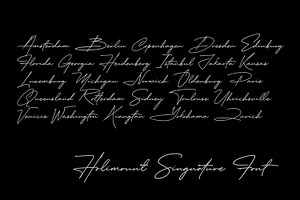 Amsterdam Berlin Copenhagen Dresden Edenburg
Florida Georgia Heidenberg Istanbul Jakarta Kansas
Luxemburg Michigan Norwich Oldenburg Paris
Queensland Rotterdam Sidney Toulouse Uhrichsville
Venicie Washington Xiangtan Yokohama Zurich
Holimount Singnature Font